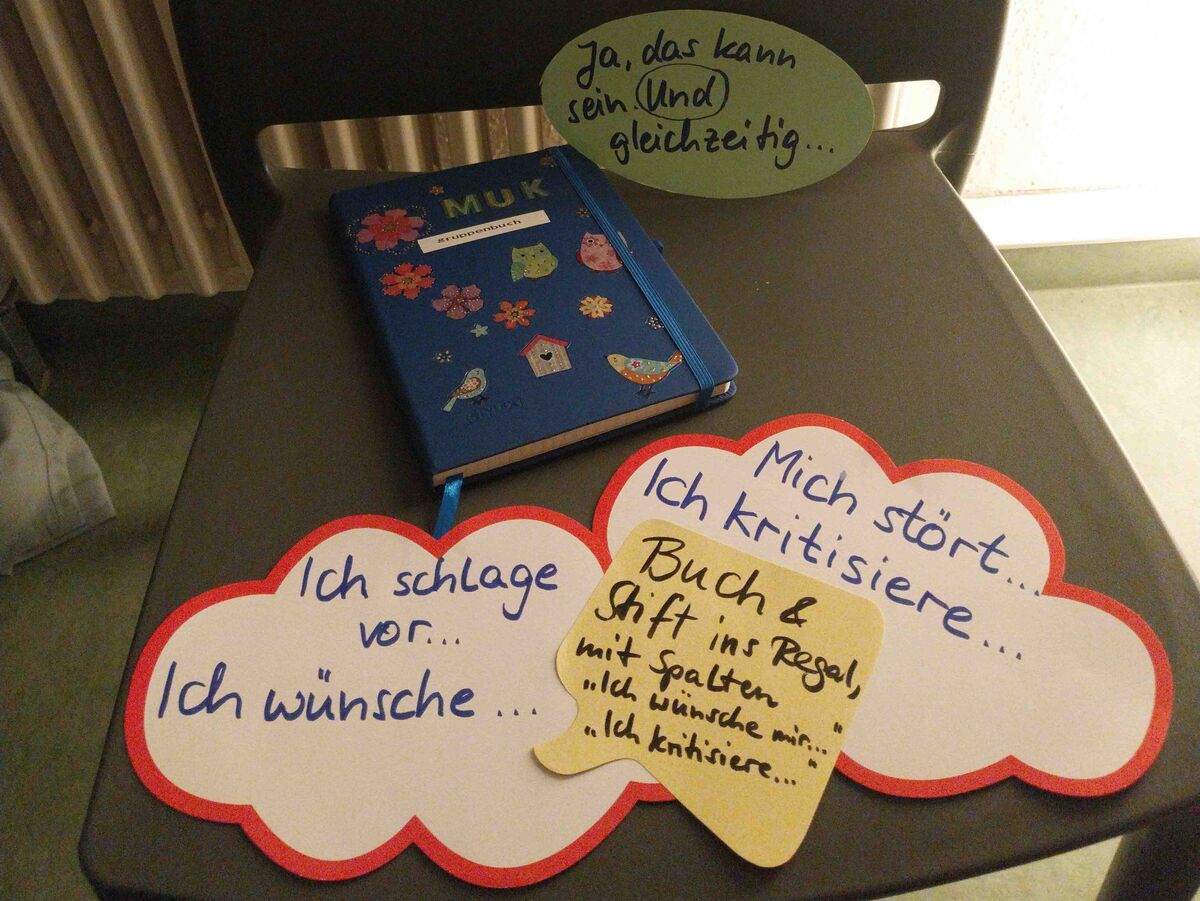 Ja, das kann
sein. Und
gleichzeitig...
MUK
gruppenbuch
Mich stört...
Ich kritisiere...
Ich schlage
vor...
Ich wünsche ...
Buch &
Stift ins Regal,
mit Spalten
„Ich wünsche mir..."
„Ich kritisiere..."